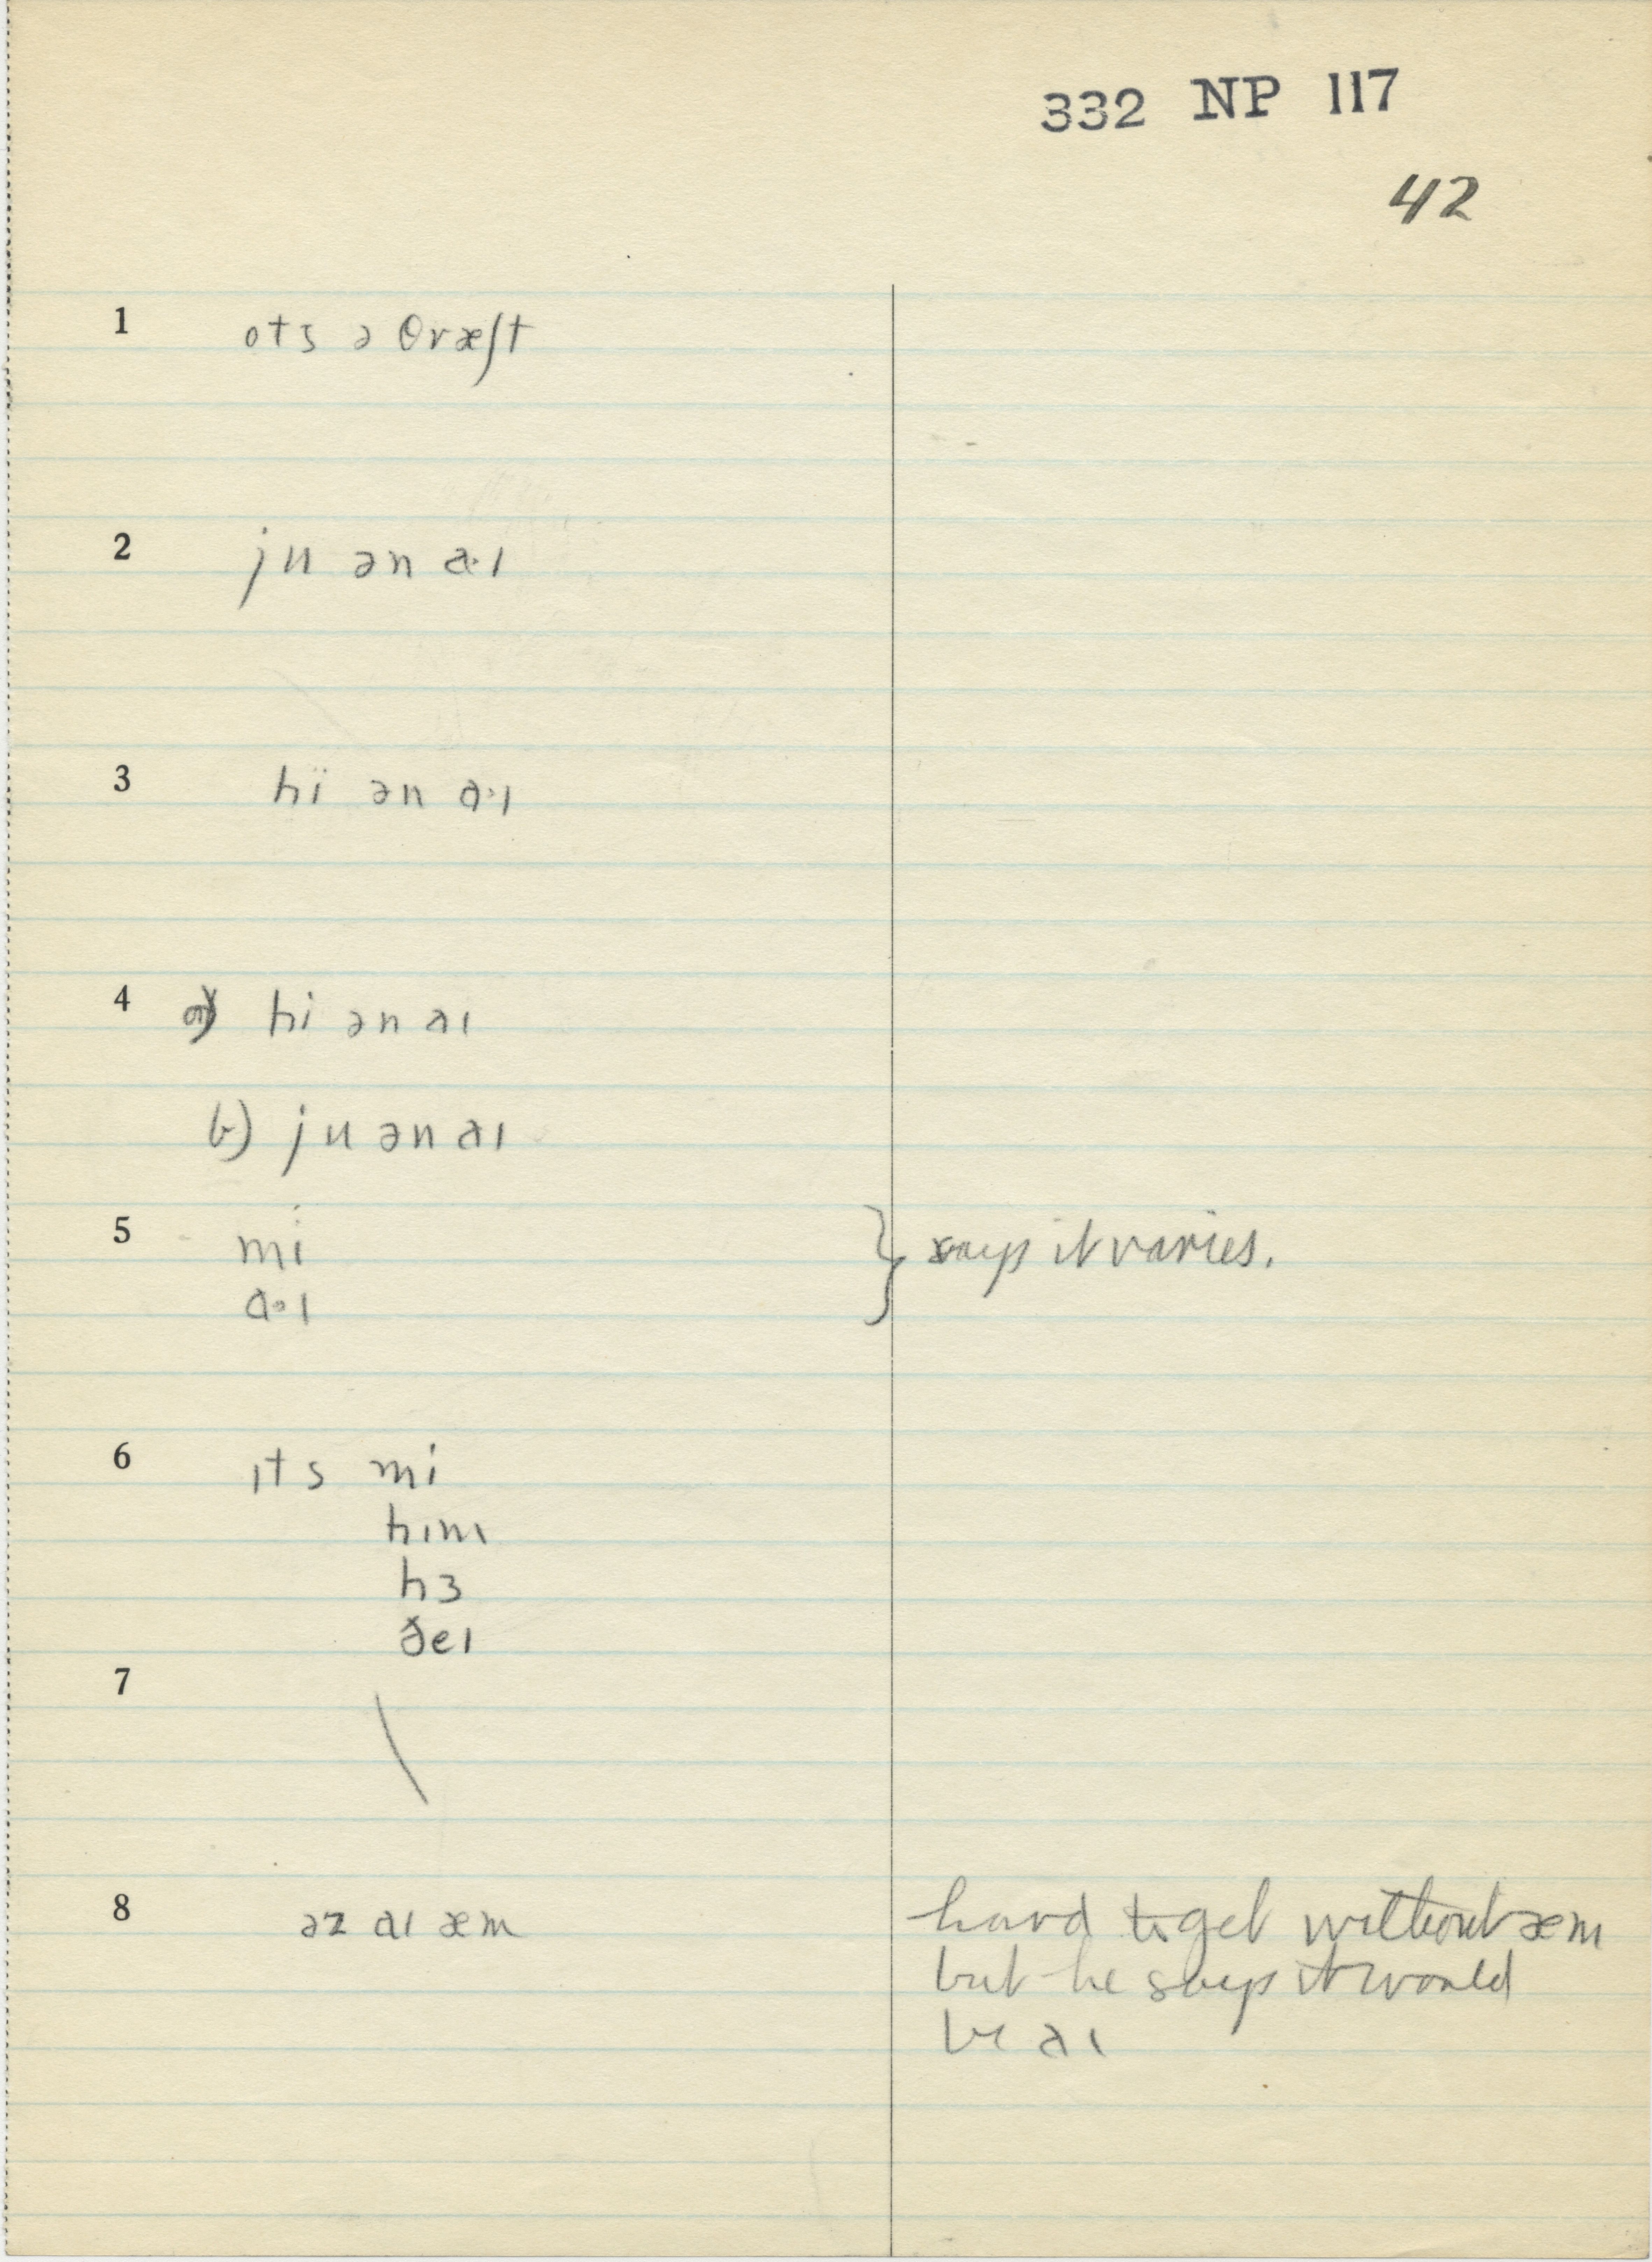 332 NP 117
42
1 ots ə θræʃt
2 ju ən a·ɪ
3 hï ən a·ɪ
4 a) hi ən aɪ
b) ju ən aɪ
5 mi } says it varies.
a·ɪ
6 ɪts mi
hɪm
hɜ
ðeɪ
7 \
8 əz aɪ æm
hard to get without æm
but he says it would
be aɪ